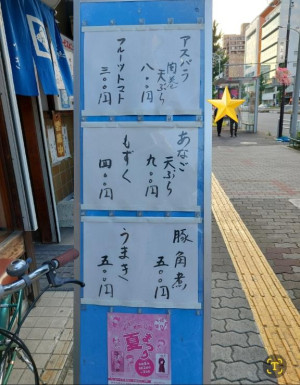 アスパラ
肉巻天ぷら
八〇〇円
フルーツトマト
三〇〇円
あなご
天ぷら
九〇〇円
もずく
四〇〇円
豚角煮
五〇〇円
うまき
五〇〇円
夏